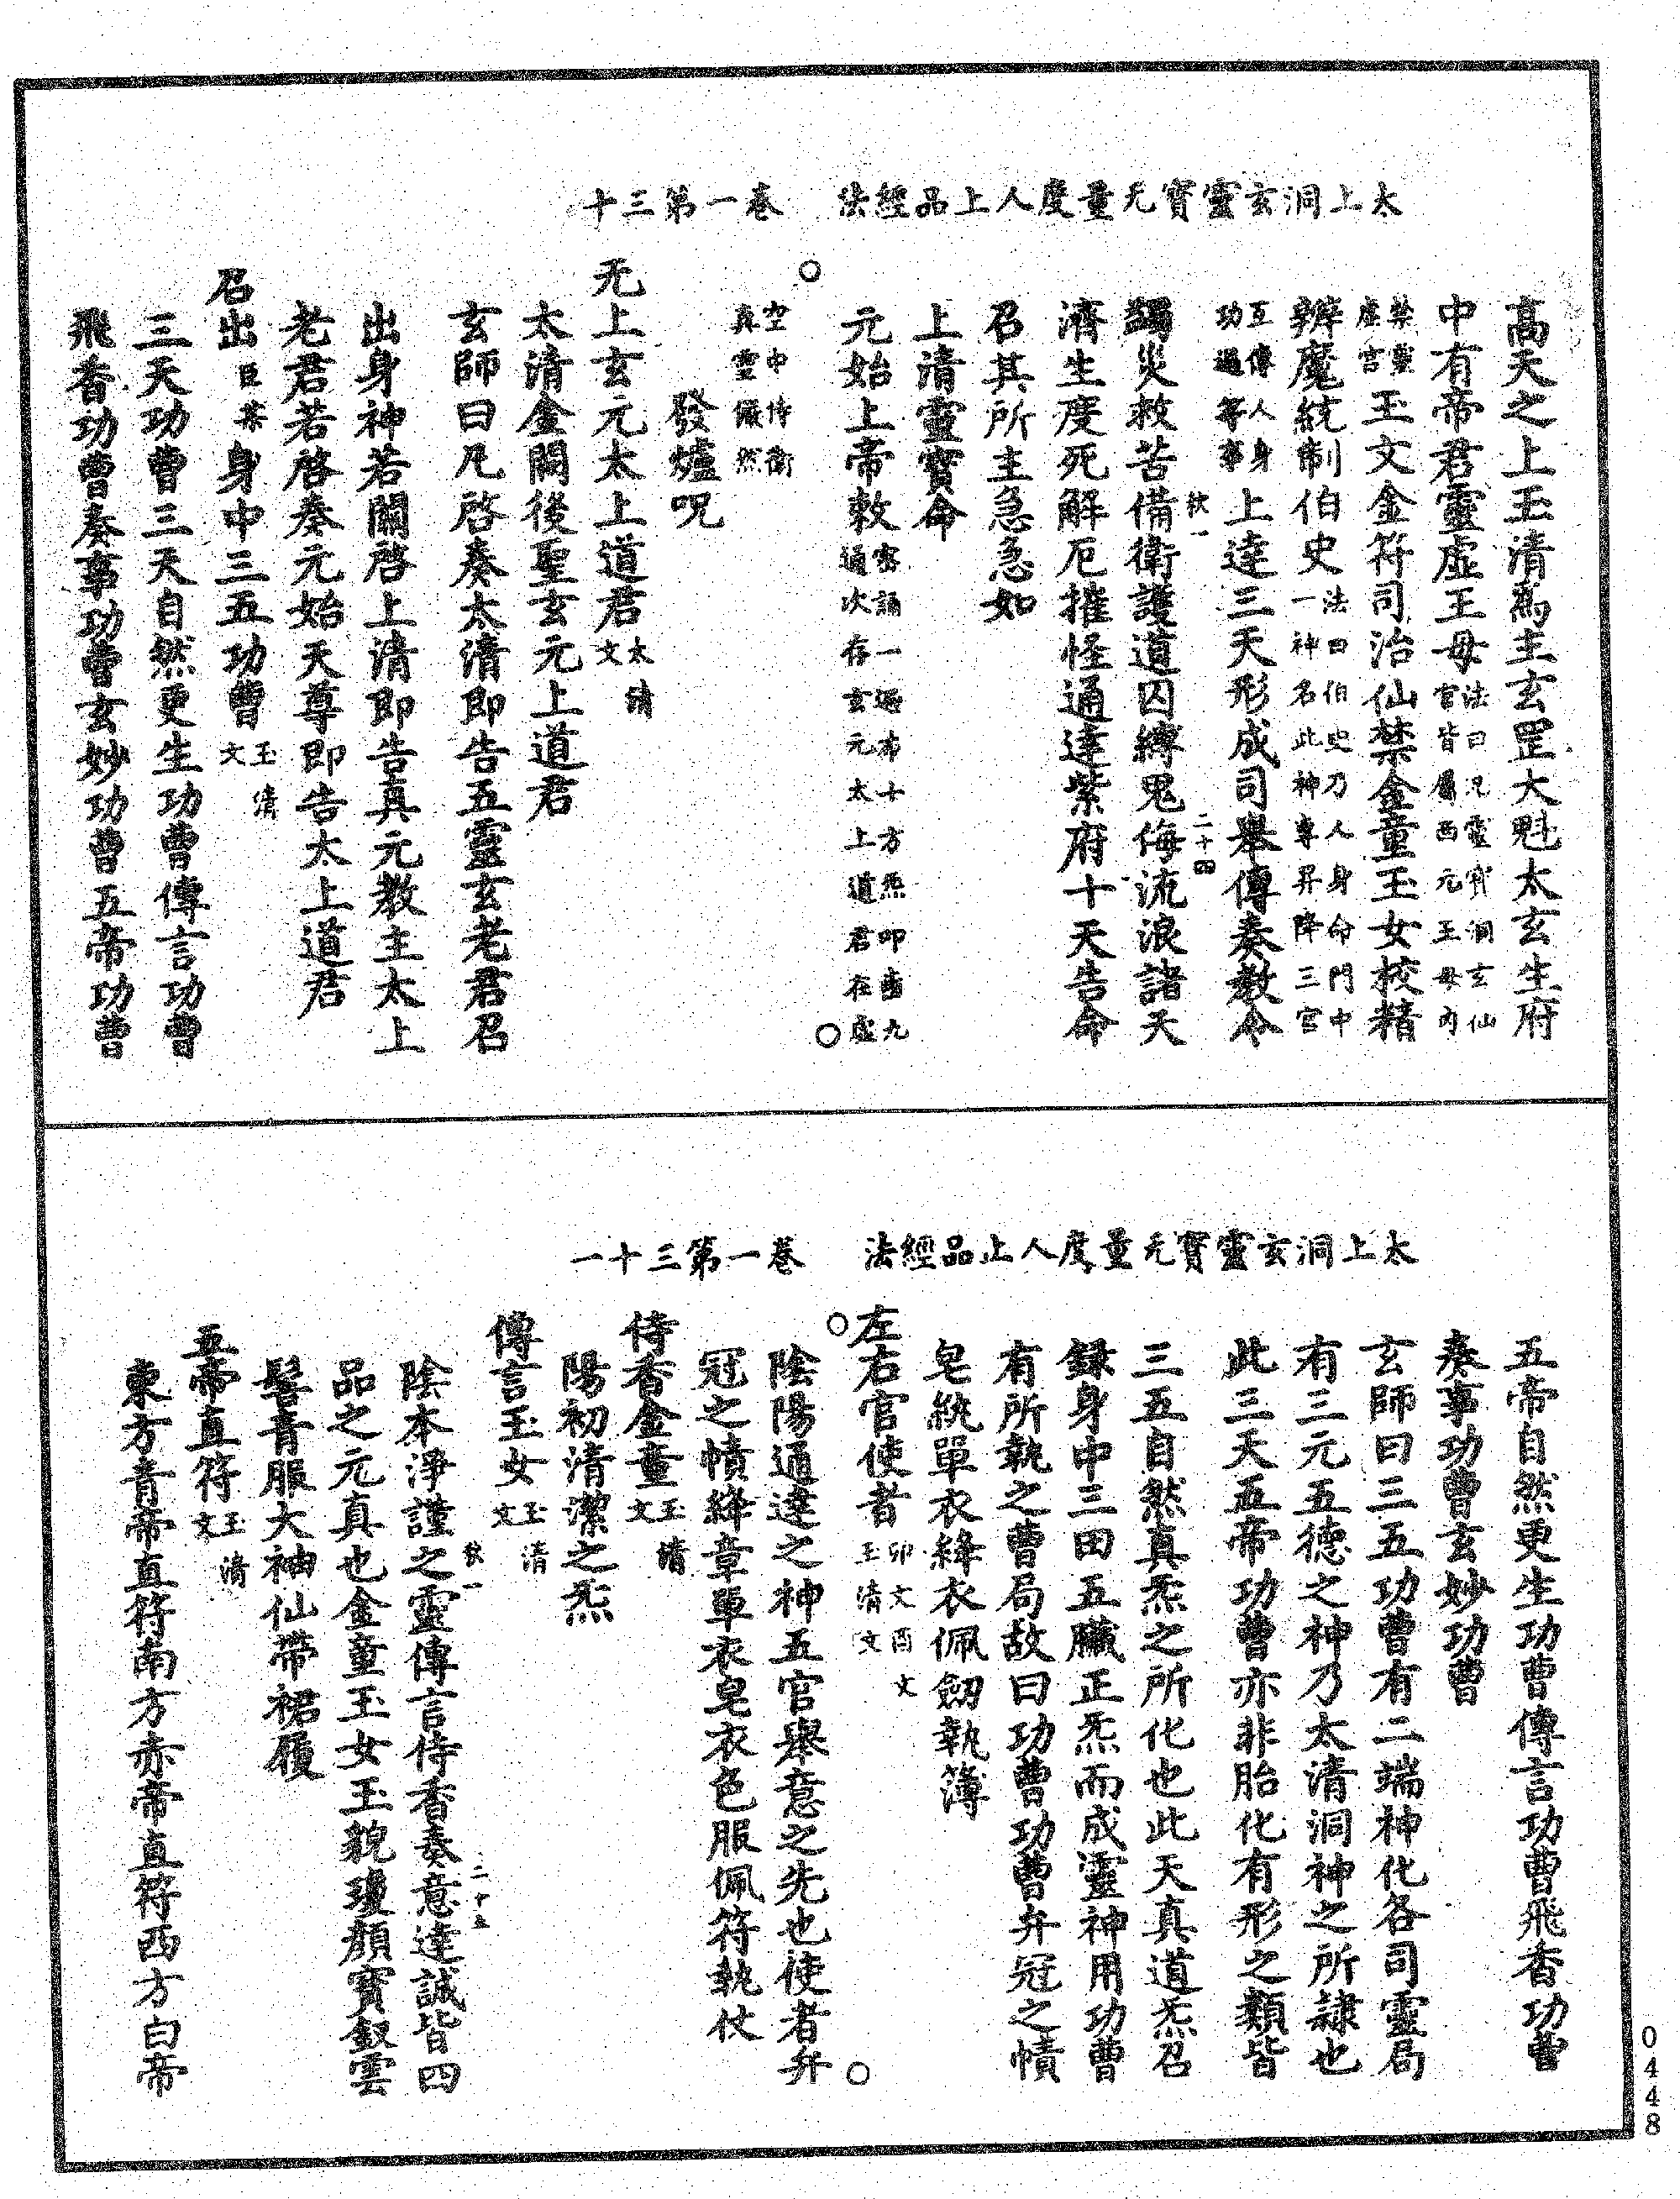 太上洞玄靈寶无量度人上品經法　卷一第三十
高天之上玉清爲主玄罡大魁太玄生府
中有帝君靈虛王母法曰凡靈寶洞玄仙官皆屬西元王母內
禁靈虛言玉文金符司治仙禁金童玉女校精
辨魔統制伯史法曰伯史乃人身命門中一神名此神專昇降三官
互傳人身功過等事上達三天形成司舉傳奏教令
蠲災救苦備衛護道囚縛鬼侮流浪諸天
狄一　二十四
濟生度死解厄摧怪通達紫府十天告命
召其所主急急如
上清靈寶命
元始上帝敕密誦一遍布十方炁叩齒九通次存玄元太上道君在虛
空中侍衛真靈儼然
發爐呪
无上玄元太上道君太清文
太清金闕後聖玄元上道君
玄師曰凡啓奏太清即告五靈玄老君召
出身神若關啓上清即告真元教主太上
老君若啓奏元始天尊即告太上道君
召出臣某身中三五功曹玉清文
三天功曹三天自然更生功曹傳言功曹
飛香功曹奏事功曹玄妙功曹五帝功曹
太上洞玄靈寶无量度人上品經法　卷一第三十一
五帝自然更生功曹傳言功曹飛香功曹
奏事功曹玄妙功曹
玄師曰三五功曹有二端神化各司靈局
有三元五德之神乃太清洞神之所隷也
此三天五帝功曹亦非胎化有形之類皆
三五自然真炁之所化也此天真道炁召
錄身中三田五臟正炁而成靈神用功曹
有所執之曹局故曰功曹功曹弁冠之幘
皂統單衣絳衣佩劒執簿
左右官使者卯文酉文玉清文
陰陽通達之神五官舉意之先也使者弁
冠之幘絳章單衣皂衣色服佩符執仗
侍香金童玉清文
陽初清潔之炁
傳言玉女玉清文
狄一　二十五
陰本淨謹之靈傳言侍香奏意達誠皆四
品之元真也金童玉女玉貌瓊顏寶釵雲
髻青服大袖仙帶裙履
五帝直符玉清文
東方青帝直符南方赤帝直符西方白帝
0448